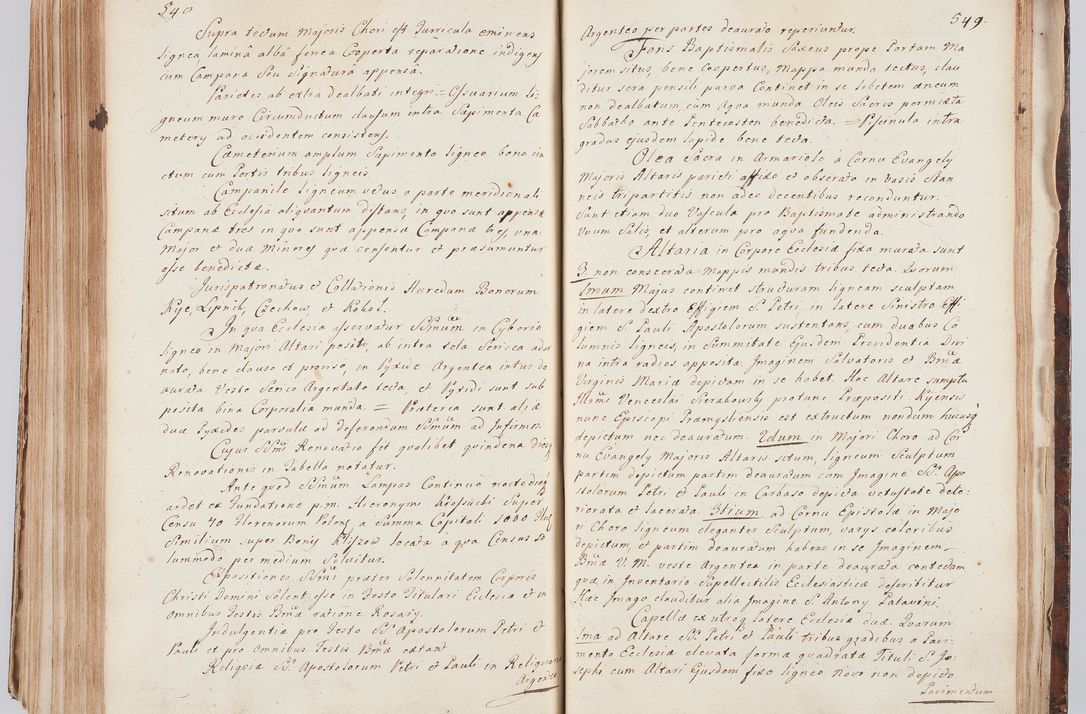 540
Supra tectum Majoris Chori est Turricula eminens
lignea lamina alba ferrea Cooperta reparatione indigens
cum Campana Seu Signatura appensa.
Parietes ab extra dealbati integri = Ossuarium li-
gneum muro Circumductum clausum intra Sapimenta Cæ
metery ad occidentem consistens.
Cæmeterium amplum Sapimento ligneo bono cin
ctum cum Portis tribus ligneis
Campanile ligneum vetus a parte meridionali
situm ab Ecclesia aliquantum distans, in quo sunt appensæ
Campanæ tres in quo sunt appensæ Campanæ tres, una
Major et duæ Minores quæ censentur et præsumuntur
esse benedictæ.
Jurispatronatus et Collationis Hæredum Bonorum
Kije, Lipnik, Czechow, et Kokot.
In qua Ecclesia asservatur SSmum in Cyborio
ligneo in Majori Altari posito, ab intra tela Sericea ador
nato, bene clauso et proviso, in Pyxide Argentea intus de
aurata Veste Serico Argentato tecta, et Pyxidi sunt sub
posita bina Corporalia munda. = Præterea sunt aliæ
duæ Pyxides parvulæ ad deferendum SSmum ad Infirmos.
Cujus SSmi Renovatio fit qualibet quindena dies
Renovationis in Tabella notatur.
Ante quod SSmum Lampas Continuo nocte dieq
ardet ex Fundatione p.m. Hieronymi Super
Censu 70 Florenorum Polons, a Summa Capitali 1000 Flor
Similium super Bonis Klyszow locata a qua Census so
lummodo per medium Solvitur.
Expositiones SSmi præter Solennitatem Corporis
Christi Domini solent esse in Festo Titulari Ecclesiæ et in
omnibus Festis Bmæ ratione Rosary.
Indulgentiæ pro Festo SS. Apostolorum Petri et
Pauli et pro Omnibus Festis Bmæ extant
Reliquiæ SS. Apostolorum Petri et Pauli in Reliquiario
Argenteo
549.
Argenteo per partes deaurato reperiuntur.
Fons Baptismalis Saxeus prope Portam Ma
jorem situs, bene Coopertus, Mappa munda tectus, clau
ditur sera pensili parva Continet in se lebetem æneum
non dealbatum, cum Aqua munda Oleis Sacris permixta
Sabbatho ante Pentecosten benedicta. = Piscinula intra
gradus ejusdem lapide bene tecta.
Olea Sacra in Armariolo a Cornu Evangely
Majoris Altaris parieti affixo et obserato in vasis Stan
neis tripartitis non adeo decentibus reconduntur.
Sunt etiam duo Vascula pro Baptismate administrando
Unum Salis, et alterum pro aqua fundenda.
Altaria in Corpore Ecclesiæ fixa murata sunt
3. non consecrata Mappis mundis tribus tecta. Quorum
Imum Majus continet structuram ligneam sculptam
in latere dextro Effigiem S. Petri, in latere Sinistro Effi
giem S. Pauli Apostolorum sustentans, cum duabus Co
lumnis ligneis, in Summitate Ejusdem Providentia Divi
na intra radios apposita Imaginem Salvatoris et Bmæ
Virginis Mariæ depictam in se habet. Hoc Altare sumptu
Illrmi Venceslai Sierakowsky protunc Præpositi Kijensis
nunc Episcopi Præmysliensis est extructum nondum hucusq
depictum nec deauratum. 2dum in Majori Choro ad Cor
nu Evangely Majoris Altaris situm, ligneum Sculptum
partim depictum partim deauratum cum Imagine SS. Apo
stolorum Petri et Pauli in Carbaso depicta vetustate dete-
riorata et lacerata. 3tium ad Cornu Epistolæ in Majo
ri Choro ligneum eleganter Sculptum, varys coloribus
depictum, et partim deauratum habens in se Imaginem
Bmæ V. M. veste Argentea in parte deaurata contectam
quæ in Inventario Supellectilis Ecclesiasticæ describitur
Hæc Imago clauditur alia Imagine S. Antony Patavini.
Capellæ ex utroq latere Ecclesiæ duæ. Quarum
Ima ad Altare SS. Petri et Pauli tribus gradibus a Pavi-
mento Ecclesiæ elevata formæ quadratæ Tituli S. Jo-
sephi cum Altari Ejusdem fixo ligneo Novo non depicto
Pavimentum